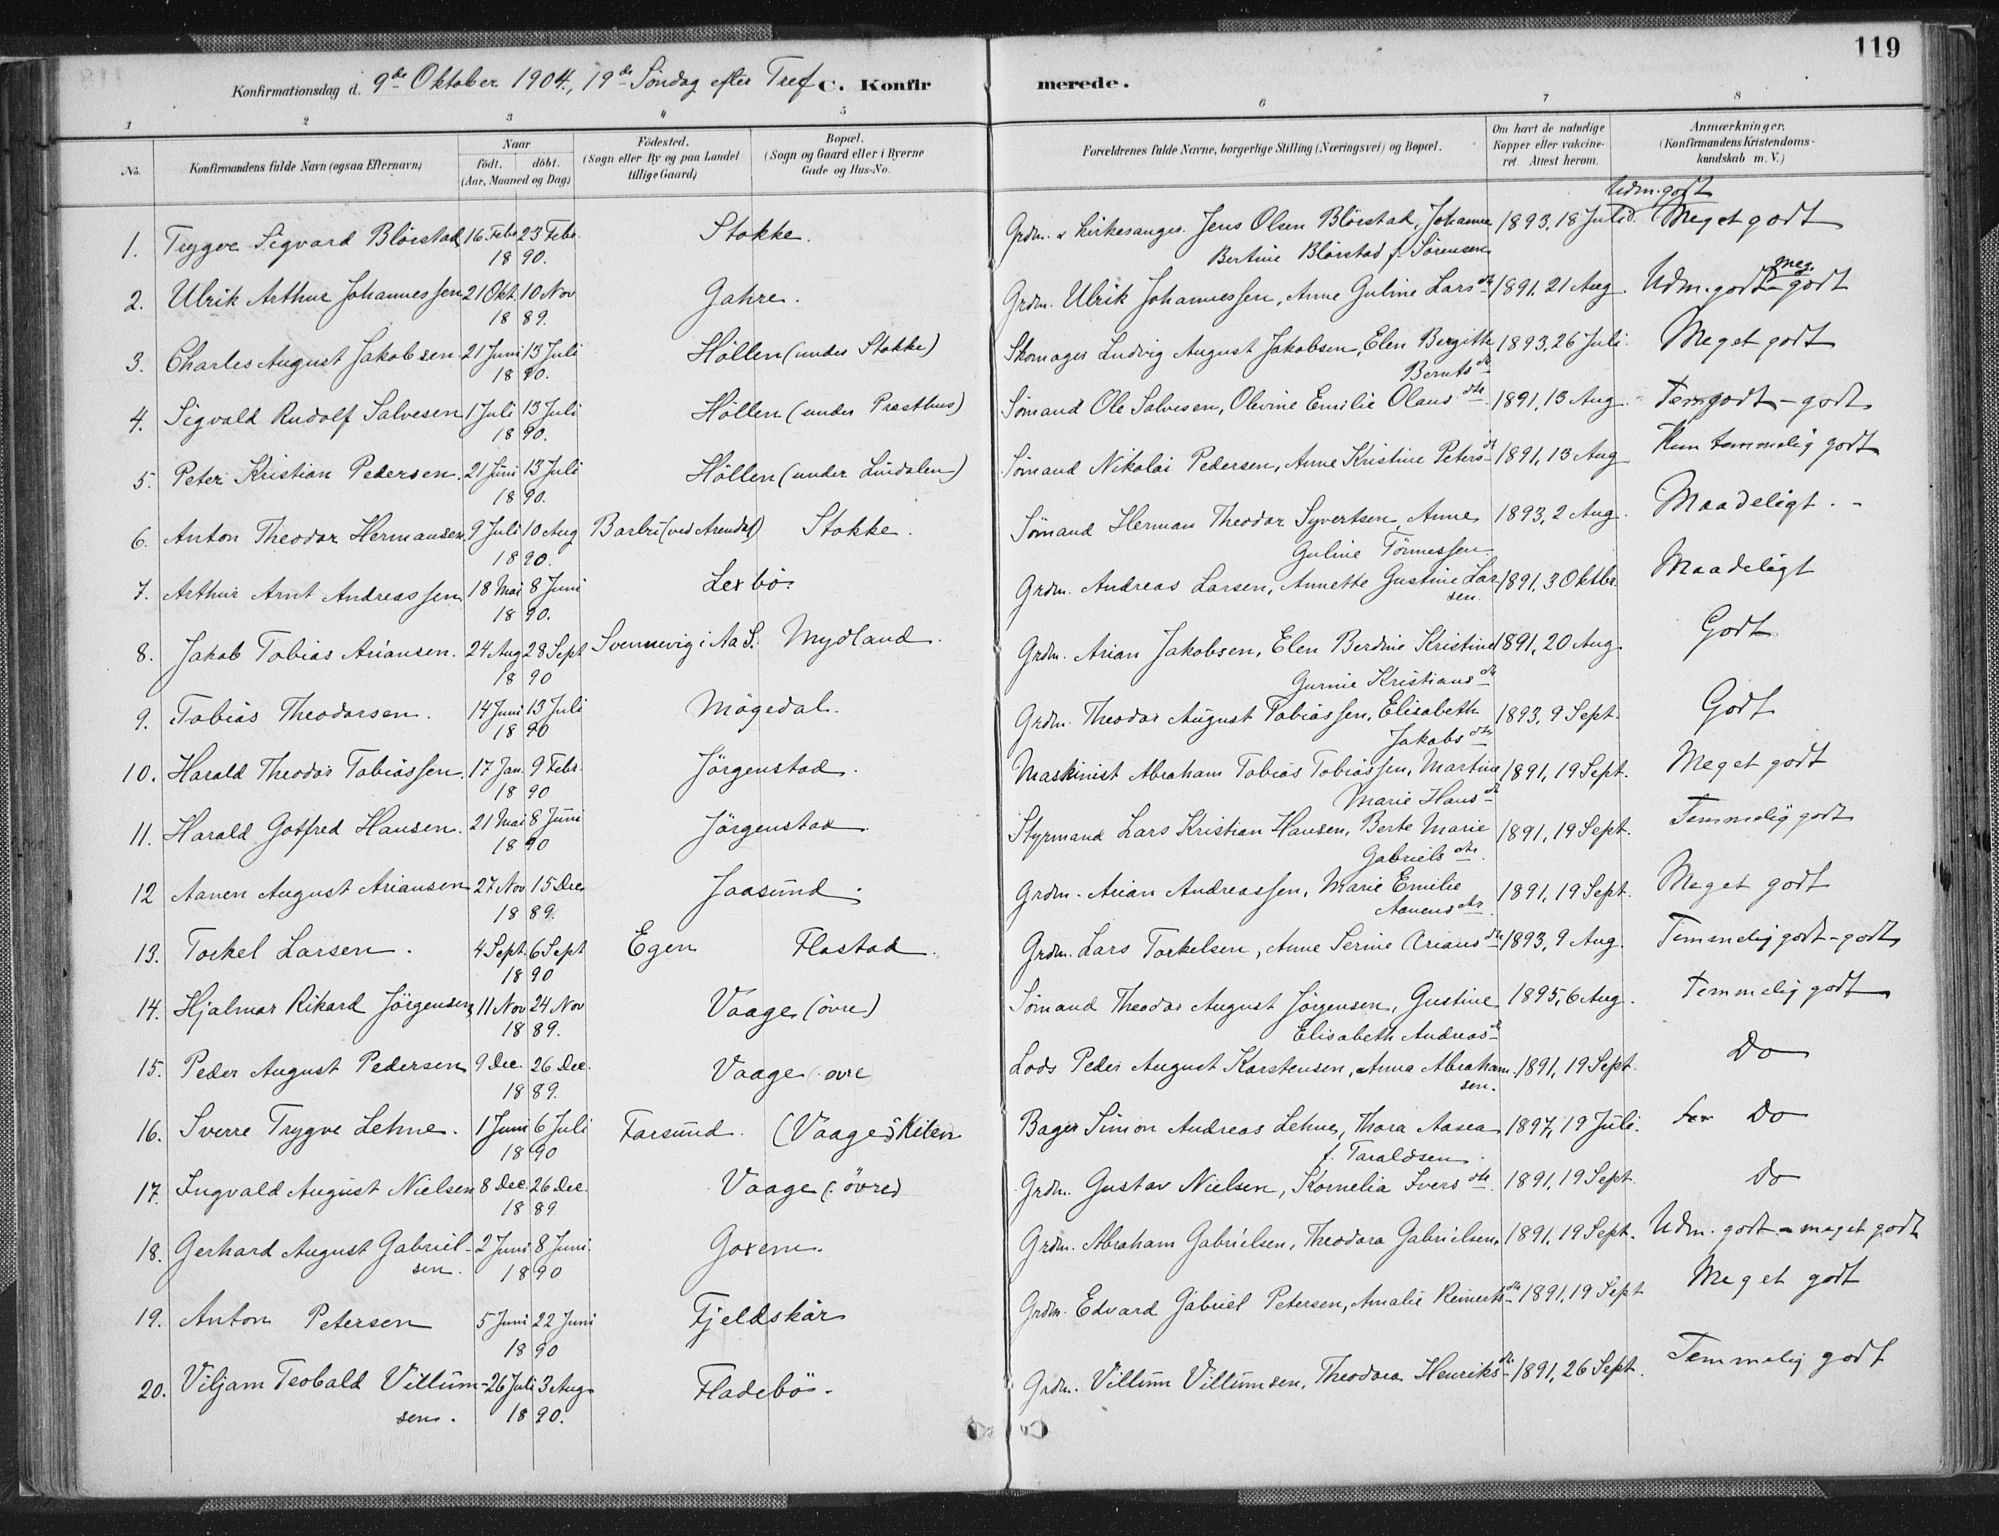 119
Konfirmationsdag d. 9de Oktober 1904, 19de Söndag efter Tref C. Konfirmerede.
1 2 3 4 5 6 7 8
No. Konfirmandens fulde Navn (ogsaa Efternavn) Naar födt. döbt. (Aar, Maaned og Dag) Födested. (Sogn eller By og paa Landet tillige Gaard) Bopæl. (Sogn og Gaard eller i Byerne Gade og Hus-No. Forældrenes fulde Navne, borgerlige Stilling (Næringsvei) og Bopæl. Om havt de naturlige Kopper eller vakcineret. Attest herom. Anmærkninger. (Konfirmandens Kristendomskundskab m. V.)
Udm. godt
1. Trygve Sigvard Blörstad 16 Febr 23 Febr. Stokke. Grdm. & Kirkesanger Jens Olsen Blörstad, Johanne 1893, 18 Juli Meget godt
1890. Bertine Blörstad f. Sörensen
2. Ulrik Arthur Johannessen 21 Okt. 10 Nov Gahre. Grdm. Ulrik Johannessen, Anne Guline Larsdtr 1891, 21 Aug. Udm. godt - meg. godt
1889.
3. Charles August Jakobsen 21 Juni 13 Juli Höllen (under Stokke) Skomager Ludvig August Jakobsen, Elen Bergitte 1893, 26 Juli. Meget godt
1890. Berntsdtr
4. Sigvald Rudolf Salvesen 1 Juli 13 Juli Höllen (under Presthus) Sömand Ole Salvesen, Olevine Emilie Olausdtr. 1891, 13 Aug. Tem. godt - godt
1890.
5. Peter Kristian Pedersen. 21 Juni 13 Juli Höllen (under Lindalen) Sömand Nikolai Pedersen, Anne Kristine Petersdt 1891, 13 Aug Kun temmelig godt
1890.
6. Anton Theodor Hermansen 9 Juli 10 Aug Barbu (ved Arendal) Stokke. Sömand Herman Theodor Syvertsen, Anne 1893, 2 Aug. Maadeligt.
1890. Guline Tönnessen
7. Arthur Arnt Andreassen 18 Mai 8 Juni Lexbö. Grdm. Andreas Larsen, Annette Gustine Larsen. 1891, 3 Oktbr. Maadeligt
1890.
8. Jakob Tobias Ariansen. 24 Aug 28 Sept Svennevig i Aa S. Mydland. Grdm. Arian Jakobsen, Elen Berdine Kristine 1891, 20 Aug. Godt
1890 Gurine Kristiansdtr
9. Tobias Theodorsen. 14 Juni 13 Juli Mögedal. Grdm. Theodor August Tobiassen, Elisabeth 1893, 9 Sept. Godt
1890 Jakobsdtr
10. Harald Theodor Tobiassen 17 Jan. 9 Febr. Jörgenstad. Maskinist Abraham Tobias Tobiassen, Martine 1891, 19 Sept. Meget godt
1890 Marie Hansdt
11. Harald Gotfred Hansen. 21 Mai 8 Juni Jörgenstad. Styrmand Lars Kristian Hansen, Berte Marie 1891, 19 Sept. Temmelig godt
1890 Gabrielsdtr.
12 Aanen August Ariansen 27 Nov 15 Dec Jaasund. Grdm. Arian Andreassen, Marie Emilie 1891, 19 Sept. Meget godt
1889. Aanensdtr.
13. Torkel Larsen. 4 Sept. 6 Sept Egen Flastad. Grdm. Lars Torkelsen, Anne Serine Ariansdtr 1893, 9 Aug. Temmelig godt - godt
1890
14. Hjalmar Rikard Jörgensen 11 Nov 24 Nov Vaage (övre) Sömand Theodor August Jörgensen, Gustine 1895, 6 Aug. Temmelig godt
1889. Elisabeth Andreasdt
15. Peder August Pedersen 9 Dec. 26 Dec. Vaage övre Lods Peder August Karstensen, Anna Abrahamsen. 1891, 19 Sept. Do
1889.
16. Sverre Trygve Lehne. 1 Juni 6 Juli Farsund. (Vaage) Kilen Bager Simon Andreas Lehne, Thora Aasea 1897, 19 Juli. Do
1890 f. Taraldsen.
17. Ingvald August Nielsen 8 Dec. 26 Dec. Vaage (övre) Grdm. Gustav Nielsen, Kornelia Iversdtr. 1891, 19 Sept. Do
1889
18. Gerhard August Gabrielsen. 2 Juni 8 Juni. Goxem. Grdm. Abraham Gabrielsen, Theodora Gabrielsen. 1891, 19 Sept. Udm. godt - meget godt
1890
19. Anton Petersen 5 Juni 22 Juni Fjeldskär Grdm. Edvard Gabriel Petersen, Amalie Reinertsdtr 1891, 19 Sept Meget godt
1890
20. Viljam Teobald Villumsen. 26 Juli 3 Aug Fladebö. Grdm. Villum Villumsen, Theodora Henriksdtr 1891, 26 Sept. Temmelig godt
1890.